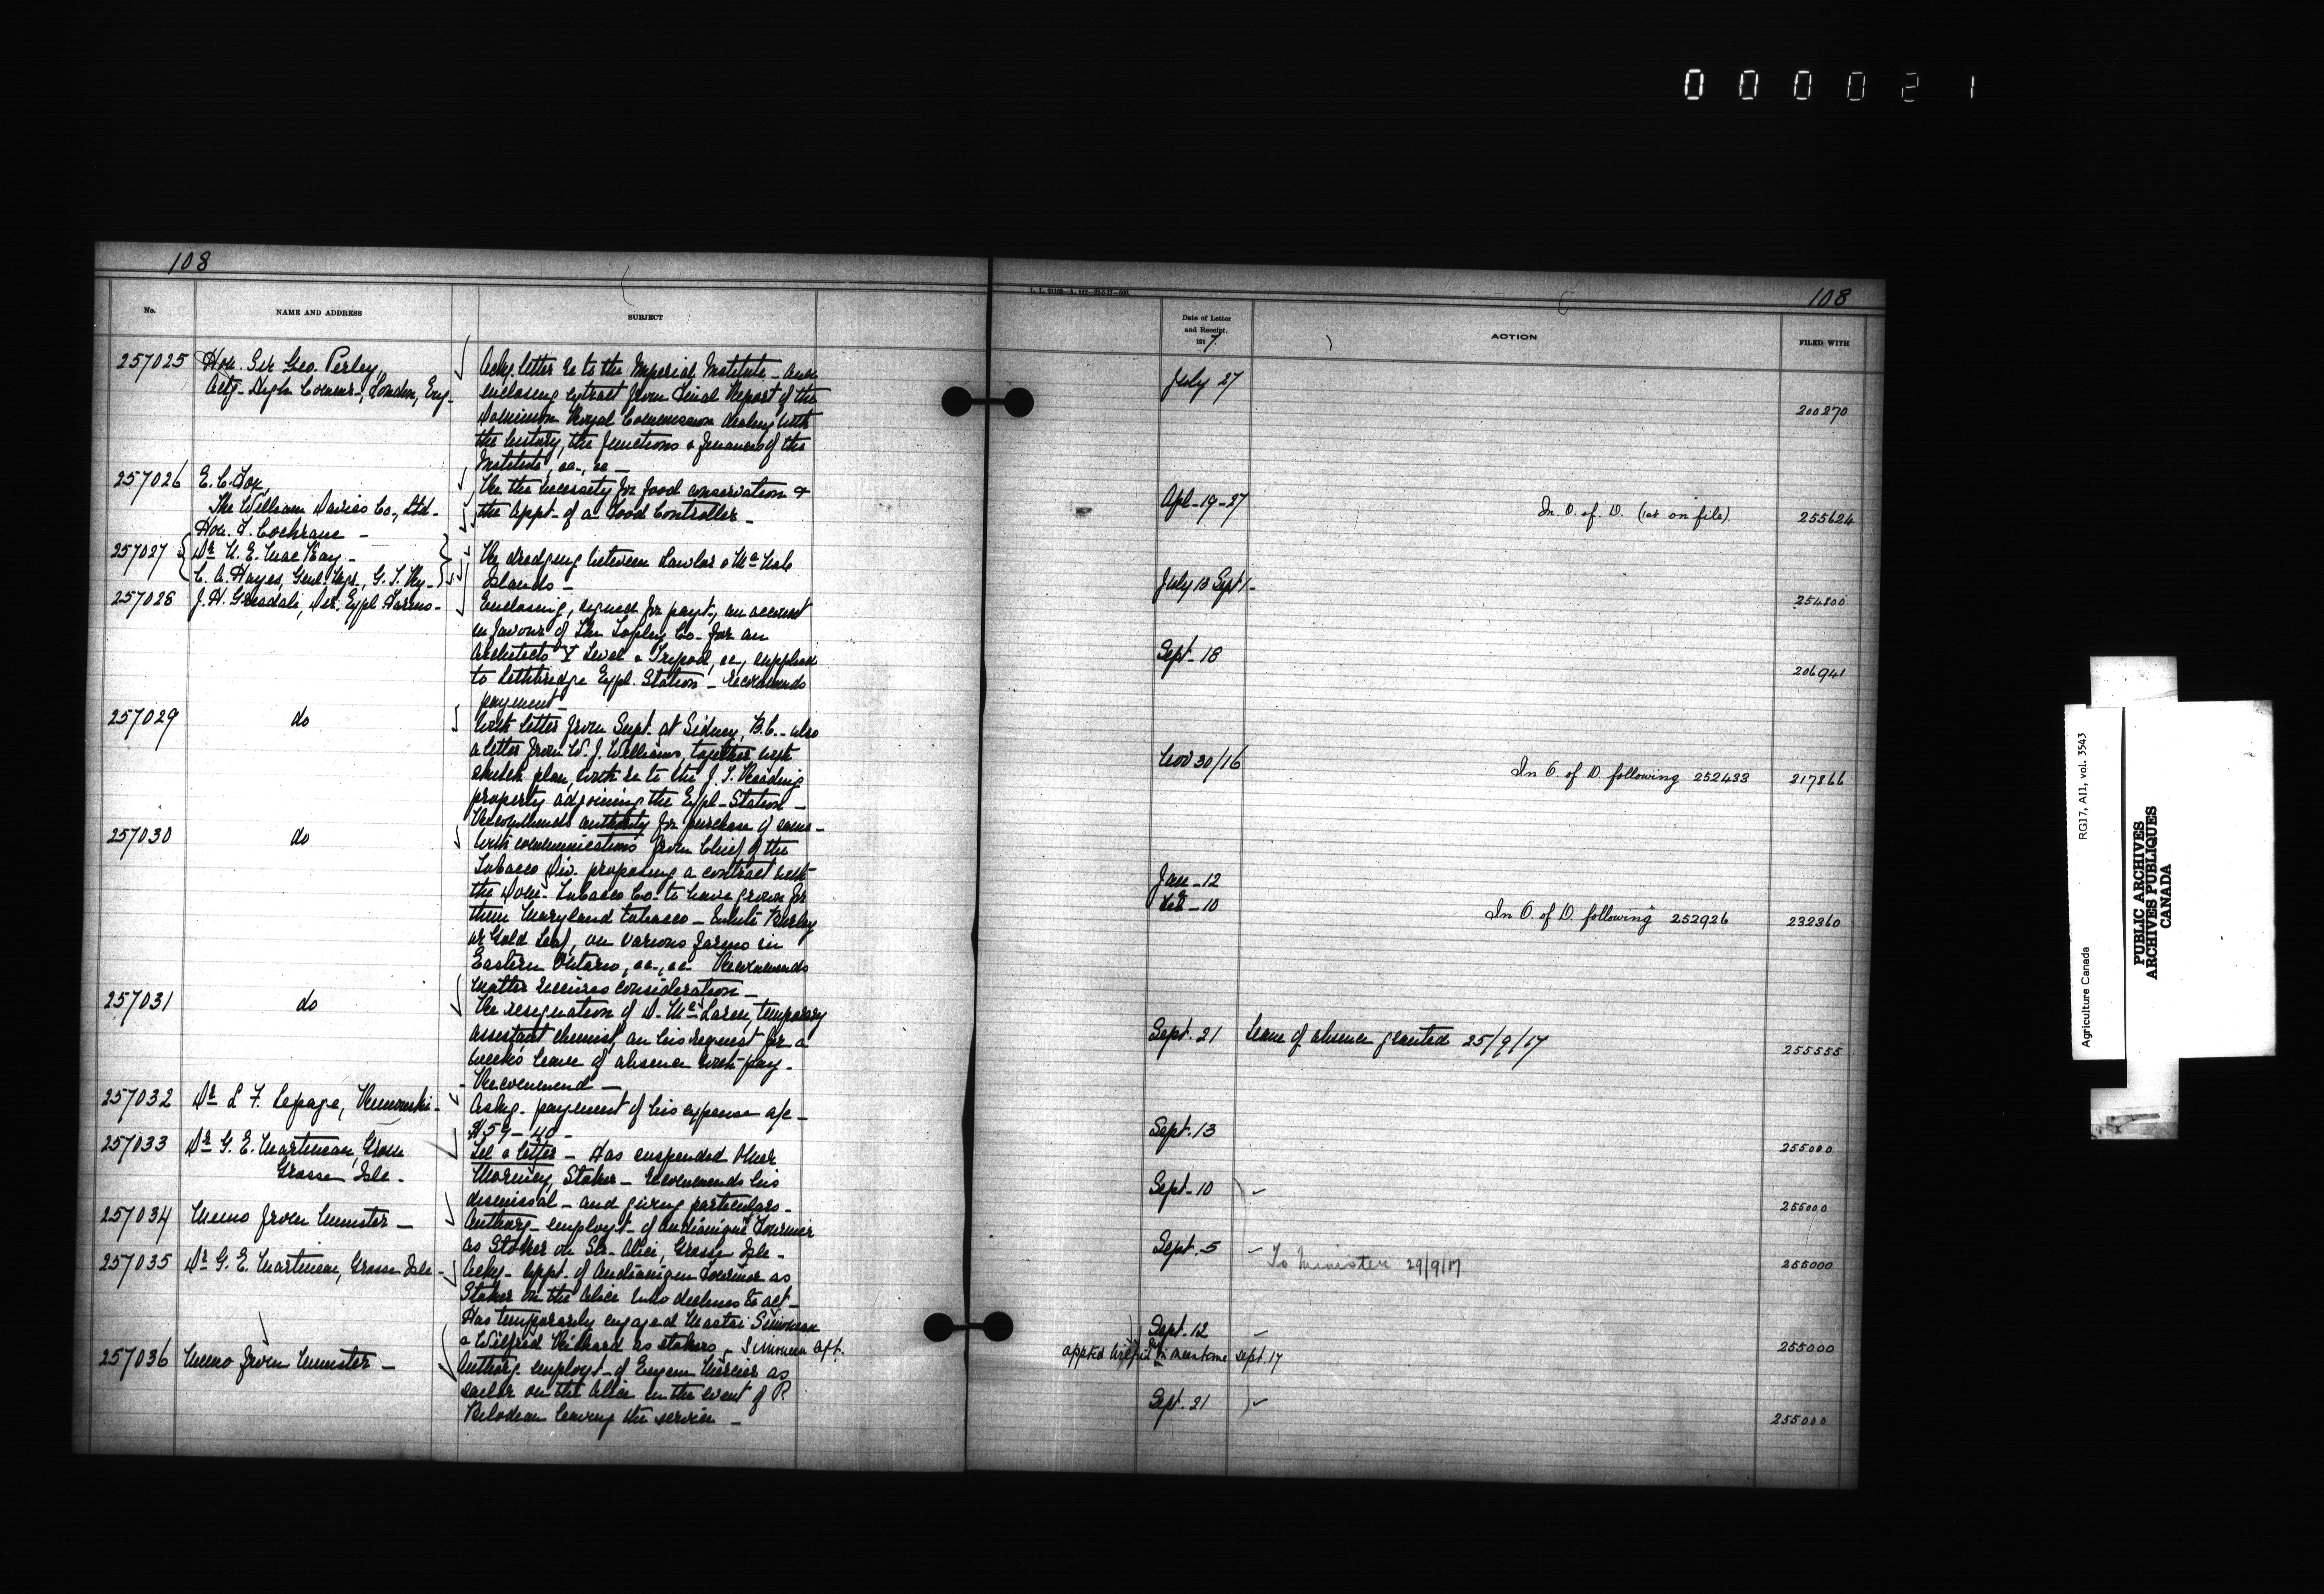 000021
108
No.
NAME AND ADDRESS
SUBJECT
257025
Hon. Sir Geo. Perley,
Actg- High Commr-, London, Eng-
Ackg. letter re to the Imperial Institute - and
enclosing extract from Final Report of the
Dominion Royal Commission dealing with
the history, the functions & finances of the
Institute, &c-, &c -
257026
E. C. Fox,
The William Davies Co-, Ltd-
Re the necessity for food conservation &
the appt- of a Food Controller-
Hon. F. Cochrane -
257027
Dr N. E. MacKay -
C. A. Hayes, Genl. Mgr., G. T. Ry-
Re dredging between Lawlor & McNab
Islands -
257028
J. H. Grisdale, Dir. Expl Farms-
Enclosing, signed for payt-, an account
in favour of The Topley Co- for an
Architects Y Level & Tripod, &c-, supplied
to Lethbridge Expl. Station - recommends
payment-
257029
do
With letter from Supt. at Sidney, B.C.- also
a letter from W. J. Williams, together with
sketch plan, with re to the J. T. Reading
property adjoining the Expl- Station -
Recommends authority for purchase of same-
257030
do
With communications from Chief of the
Tobacco Div. proposing a contract with
the Dom- Tobacco Co- to have grown for
them Maryland tobacco - White Burley
or Gold Leaf, on various farms in
Eastern Ontario, &c-, &c- Recommends
matter receives consideration -
257031
do
Re resignation of D. McLaren, temporary
assistant chemist, on his request for a
week's leave of absence with pay-
- Recommend -
257032
Dr L. F. Lepage, Rimouski-
Ackg- payment of his expense a/c -
$59-40-
257033
Dr G. E. Martineau, Grosse
Grosse Isle-
Tel & letter - Has suspended Omer
Morency, Stoker - recommends his
dismissal - and giving particulars-
257034
Memo from Minister -
Authorg- employt- of Fournier
as Stoker on Str- Alice, Grosse Isle-
257035
Dr G. E. Martineau, Grosse Isle-
Ackg- appt- of Fournier as
Stoker on the Alice who declines to act-
Has temporarily engaged Simoneau
& Wilfrid Richard as stokers - Simoneau apt.
257036
Memo from Minister -
Authorg- employt- of Eugene Mercier as
sailor on the Alice in the event of P.
Bilodeau leaving the service -
108
Date of Letter
and Receipt.
1917.
ACTION
FILED WITH
July 27
200270
Apl-19-27
In O. of D. (1st on file).
255624
July 13 Sept 1-
254800
Sept-18
206941
Nov 30/16
In O. of D. following 252433
217866
Jan-12
Feb-10
In O. of D. following 252926
232360
Sept. 21
Leave of absence granted 25/9/17
255555
Sept. 13
255000
Sept-10
255000
Sept. 5
To Minister 29/9/17
255000
Sept. 12
appted Wilfrid in meantime Sept. 17
255000
Sept. 21
255000
Agriculture Canada
RG17, AII, vol. 3543
PUBLIC ARCHIVES
ARCHIVES PUBLIQUES
CANADA